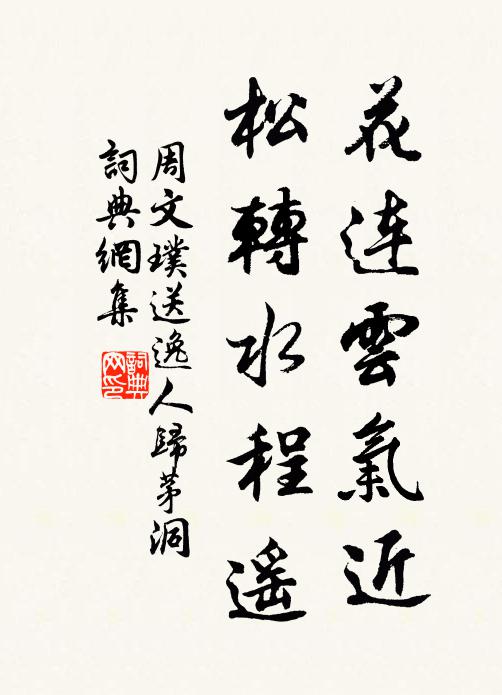 花连雲氣近
松轉水程遥
周文璞送逸人歸茅洞
詞典網集
詞典网印